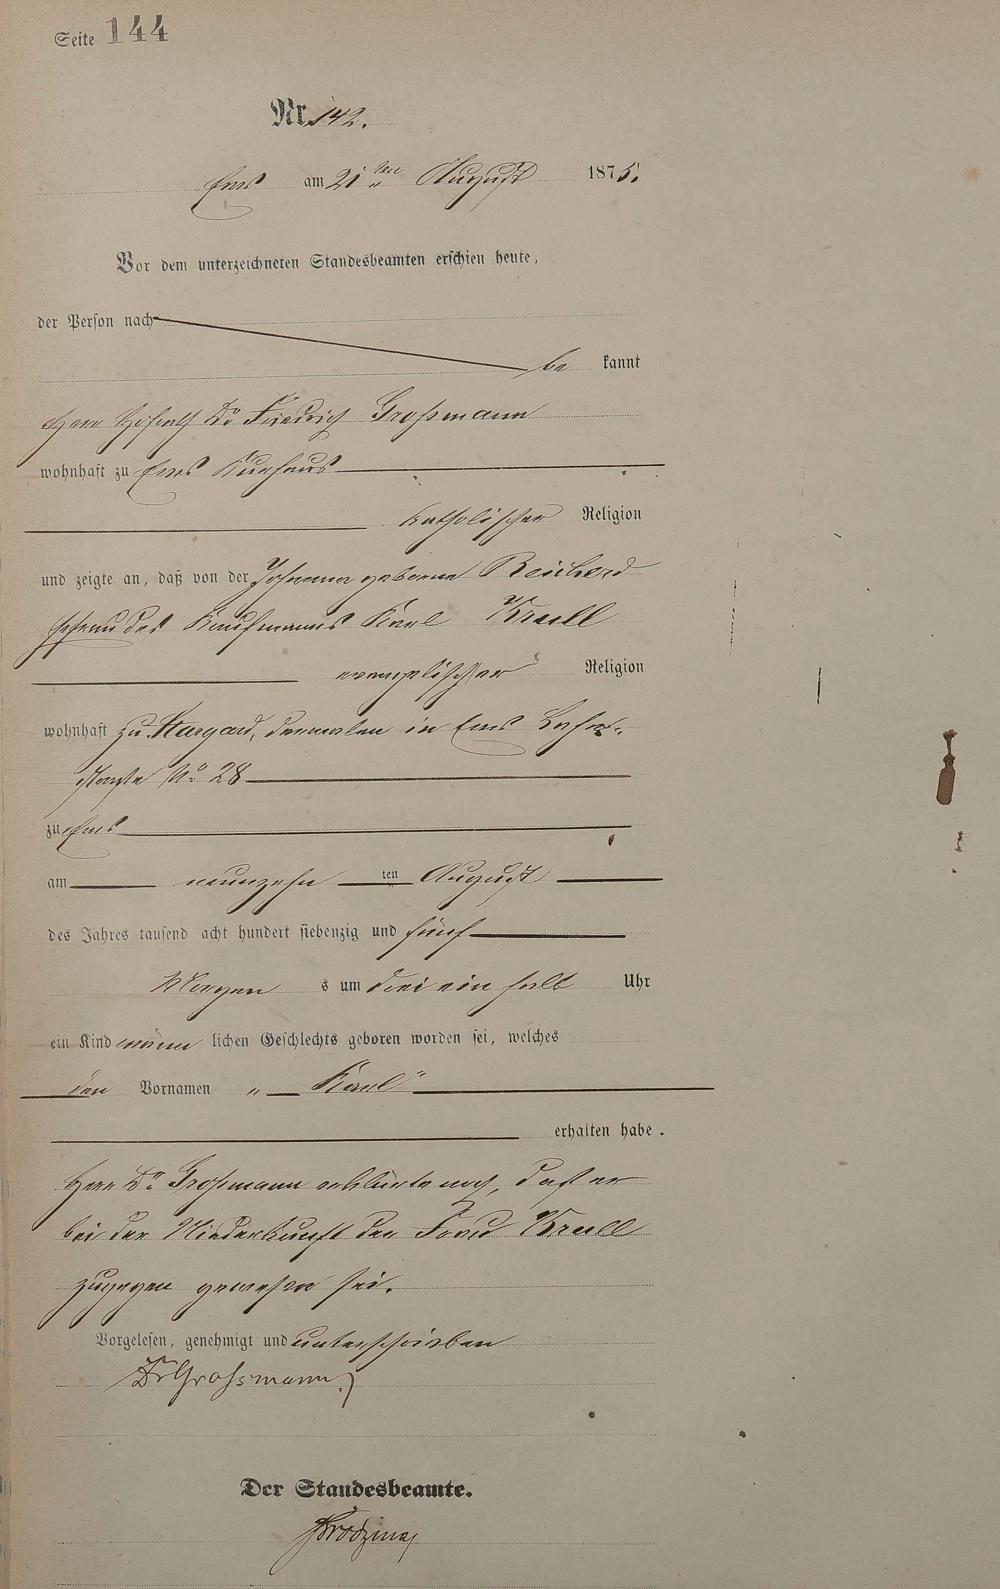 Seite 144
Nr. 142.
Ems am 21ten August 1875.
Vor dem unterzeichneten Standesbeamten erschien heute,
der Person nach
be kannt
Herr Hofrath Dr Friedrich Großmann
wohnhaft zu Ems Kurhaus
katholischer Religion
und zeigte an, daß von der Johanna geborene Reichard
Ehefrau des Kaufmanns Karl Krull
evangelischer Religion
wohnhaft zu Stargard, dermalen in Ems Lahn-
straße No. 28
zu Ems
am neunzehn ten August
des Jahres tausend acht hundert siebenzig und fünf
Morgen s um drei ein halb Uhr
ein Kind männ lichen Geschlechts geboren worden sei, welches
den Vornamen „Karl“
erhalten habe.
Herr Dr. Großmann erklärte noch, daß er
bei der Niederkunft der Frau Krull
zugegen gewesen sei.
Vorgelesen, genehmigt und unterschrieben
Dr Grossmann
Der Standesbeamte.